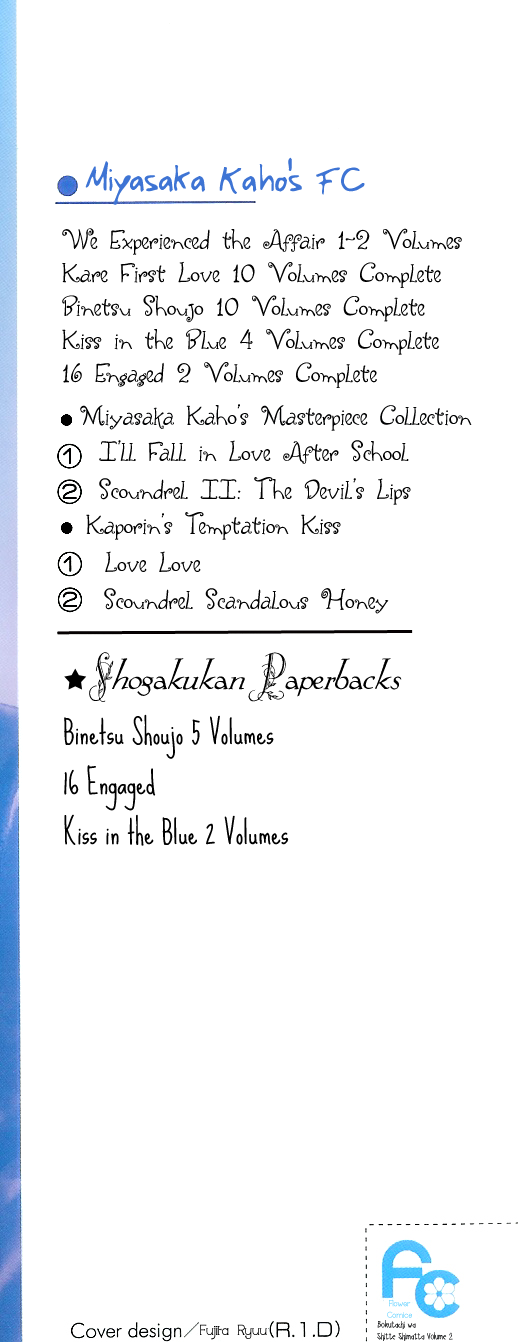 ● Miyasaka Kaho's FC
We Experienced the Affair 1~2 Volumes
Kare First Love 10 Volumes Complete
Binetsu Shoujo 10 Volumes Complete
Kiss in the Blue 4 Volumes Complete
16 Engaged 2 Volumes Complete
● Miyasaka Kaho's Masterpiece Collection
① I'll Fall in Love After School
② Scoundrel II: The Devil's Lips
● Kaporin's Temptation Kiss
① Love Love
② Scoundrel Scandalous Honey
★ Shogakukan Paperbacks
Binetsu Shoujo 5 Volumes
16 Engaged
Kiss in the Blue 2 Volumes
FC
Flower
Comics
Bokutachi wa
Shitte Shimatta Volume 2
Cover design/Fujita Ryuu(R.I.D)